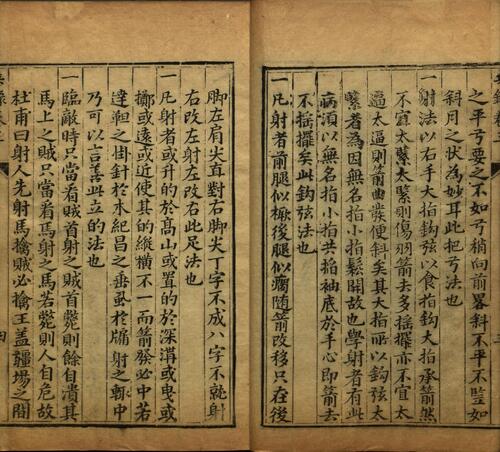 之平弓要之不如弓稍向前畧斜不平豎如
斜月之狀為妙耳此把弓法也
一射法以右手大指鈎弦以食指鈎大指承箭然
不宜太緊太緊則傷羽箭去多摇擺亦不宜太
逼太逼則箭曲發便斜矣其大指所以鈎弦太
緊者為因無名指小指鬆開故也學射者有此
病須以無名指小指共掐袖底於手心即箭去
不摇擺矣此鈎弦法也
一凡射者前腿似橛後腿似瘸随箭改移只在後
脚左肩尖直對右脚尖丁字不成八字不就射
右改左射左改右此足法也
一凡射者或升的於髙山或置的於深溝或曳或
擲或遠或近使其的縱横不一而箭發必中若
達靼之掛針於木紀昌之垂虱於牖射之輒中
乃可以言善此立的法也
一臨敵時只當看賊首射之賊首斃則餘自潰其
馬上之賊只當看馬射之馬若斃則人自危故
杜甫曰射人先射馬擒賊必擒王盖疆場之間
四